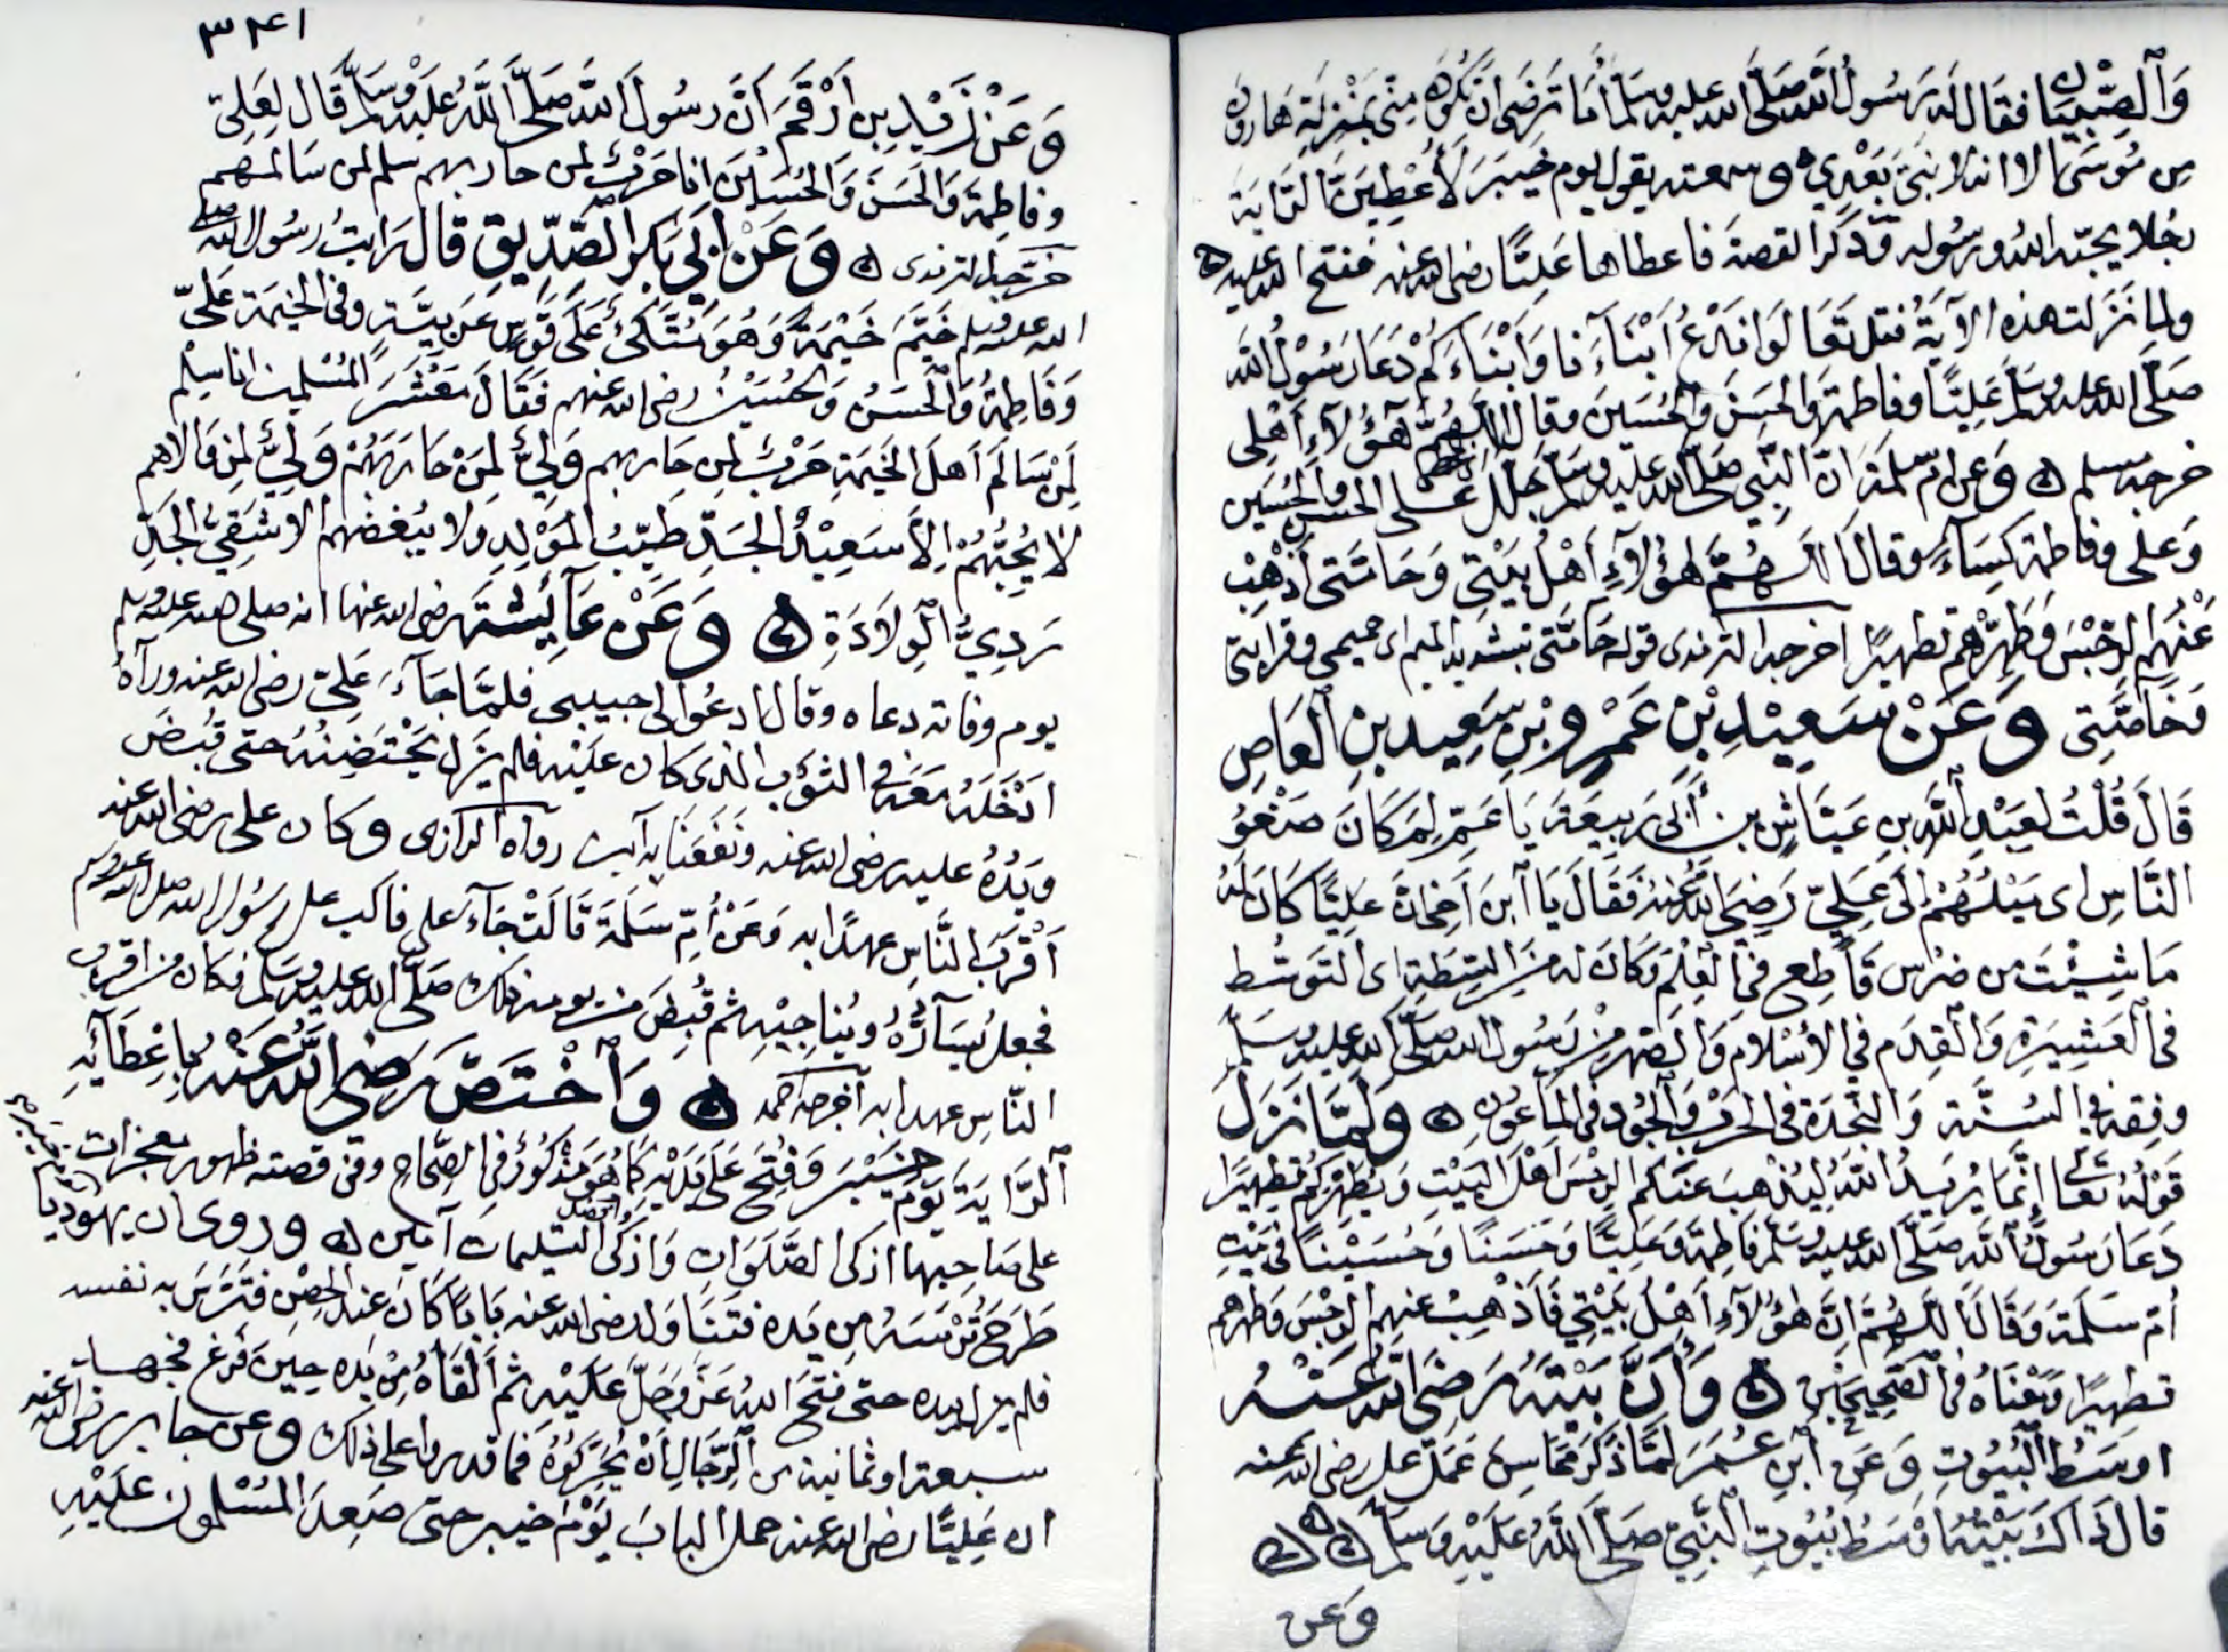 وَالصِّبْيَان فقال له رسُول الله صلى الله عليه وسلم أما ترضى ان تكون منى بمنزلة هارون
من موسى الا انه لا نبىّ بَعْدِي وسمعته يقول يوم خيبر لأُعْطِيَنَّ الرَّاية
رجُلا يحبّه الله ورسوله وذكر القصة فاعطاها عَلِيًّا رضى الله عنه ففتح الله عليه
ولما نزلت هذه الآية فقل تعالَوا ندعُ أبناءَنا وأبناءَكم دَعَا رَسُوْلُ الله
صَلَّى الله عليه وسَلَّم عَلِيًّا وفاطمة والحسَن والحُسَين وقال اللهُمَّ هَؤُلآءِ أَهْلِى
خرجه مسلم وعن ام سلمة انّ النَّبِي صَلى الله عليه وسَلم جلّل على الحسن والحُسَين
وَعلى وفاطمة كِسَاءً وقال اللهُمَّ هؤُلآءِ أهْلُ بَيْتِي وَحَامَّتى أذهِبْ
عَنْهُم الرّجْسَ وَطَهّرْهم تطهيرًا اخرجه الترمذى قوله حَامَّتى بتشديد الميم اى حميمى وقرابتى
وَخَآصَّتِى وَعَنْ سَعِيْدِ بْنِ عَمْرِو بْنِ سَعِيد بنِ الْعَاصِ
قَالَ قُلْتُ لِعَبْدِ اللّهِ بنِ عَيَّاشِ بن أَبِى رَبِيعَة يَا عَمِّ لِمَ كَانَ صَغْوُ
النَّاسِ اى مَيْلُهُمْ إلَى عَلِيّ رَضِيَ اللهُ عَنْهُ فَقَالَ يَا ابنَ أَخِى انَّ عَلِيًّا كَانَ لَهُ
مَا شِئْتَ من ضرْس قَاطِع فى العِلْم وَكَانَ له من السِطَةِ اى التَوَسُّط
فى العَشِيرَةِ وَالْقِدَم فى الأسْلام وَالصّهر من رَسُول الله صَلَّى الله عليه وسَلَّم
وفِقه في السُنَّة وَالنّجْدَة فى الحَرْب وَالجُود فى المَاعُونِ وَلَمّا نَزَلَ
قَوْلُهُ تعَالى إنَّمَا يُرِيدُ اللّهُ لِيُذْهِبَ عَنكم الرِّجْسَ اهْلَ الْبَيْتِ وَيُطَهِّرَكُمْ تطهِيرًا
دَعَا رَسُولُ اللّه صَلَّى الله عليه وسَلَّم فَاطِمَة وَعَلِيًّا وَحَسَنًا وَحُسَيْنًا فى بَيْتِ
أمّ سَلَمَة وَقَالَ اللهُمَّ انَّ هؤُلآءِ أهْلُ بَيْتِي فَأَذْهِبْ عنهم الرّجْسَ وَطهرهم
تطهِيرًا وَمَعْنَاهُ فى الصَّحِيحَيْنِ وَأَنَّ بَيْتَهُ رَضِيَ اللّهُ عَنْهُ
اوسَطُ الْبُيُوتِ وَعَنِ ابْنِ عُمَرَ لَمَّا ذَكَرَ مَحَاسِنَ عَمَلِ على رضى الله عنه
قالَ ذَاكَ بَيْتُهُ اوْسَطُ بُيُوتِ النَّبِيّ صَلَّى اللّهُ عَلَيْهِ وَسَلَّم
وَعن
٣٤١
وَعَنْ زَيْدِ بنِ أَرْقَم أَنَّ رسُول اللّه صَلَّى اللّهُ عَلَيْهِ وَسَلَّم قَال لِعَلِيّ
وفاطِمَة وَالْحَسَن وَالحُسَيْن انا حَرْبٌ لمن حاربهم سلم لمن سَالمهم
خرّجه الترمذى وَعَنْ أَبِى بَكرٍ الصّدِّيقِ قَالَ رَايتُ رسُول الله صلى
الله عليه وسلم خَيَّمَ خَيْمَةً وَهُوَ مُتَّكِئٌ عَلَى قَوْسٍ عَرَبِيَّة وفى الخيمَة عَلِيّ
وَفَاطِمَة وَالْحَسَنُ وَالحُسَيْنُ رضى الله عنهم فَقَالَ مَعْشَرَ الْمُسْلِمين انا سِلْم
لِمَنْ سَالَمَ أهلَ الْخَيْمَةِ حَرْبٌ لِمن حَاربهم وَلِيٌّ لمَنْ وَالاهم
لاَ يُحِبُّهُمْ إلاَّ سَعِيْدُ الجَدِّ طَيّبُ المَوْلِدِ وَلا يبُغضهم الا شَقِيُّ الجَدِّ
رَدِيُّ الْوِلاَدَةِ وَعَنْ عَآئِشَة رضى الله عنها انه صلى الله عليه وسلم
يوم وفاته دعاه وقال ادعُوا لى حبيبى فلمَّا جَآءَ عَلِيّ رضى الله عنه ورآهُ
ادْخَلَهُ مَعَهُ فى الثوْب الذى كان عَليْه فلم يَزَل يَحْتَضِنُهُ حتى قُبِضَ
ويَدُهُ عليه رضى الله عنه وَنَفَعَنَا بِه آمين رواه الرازى وكان على رضى الله عنه
أَقْرَبَ النَّاس عهدًا به وَعَنْ أُمّ سَلَمَة قَالَتْ جَآءَ على فاكب على رسُول الله صلى الله عليه وسلم
فجعل يُسَآرُّهُ ويُنَاجِيْهِ ثم قُبِضَ من يومه ذلك صَلَّى الله عليه وسلم فكان من اقرب
النَّاس عهدا به أخرجه احمد وَاخْتَصَّ رَضِيَ اللّهُ عَنْهُ بِإعْطَآئِهِ
الرَّايَة يَوْمَ خَيْبَر وَفُتِحَ عَلَى يَدَيْهِ كَمَا هُوَ مَذْكُوْرٌ فى الصِّحَاح وَفى قصته ظهور معجزات
على صَاحِبها ازكى الصَّلَوَات وَازكى التسليمات آمين وروى ان يهوديا
طَرَحَ تُرْسَهُ مِن يَده فتَنَاوَل رضى الله عنه بَابًا كَانَ عند الْحِصْن فتَرَّسَ بِه نفسه
فلم يزل بيده حتى فَتَحَ اللّهُ عَزَّ وَجَلَّ عَلَيْه ثم أَلْقَاهُ مِنْ يَده حِينَ فَرَغ فجهد
سبعة او ثمانية من الرِّجَال أَنْ يُحَرِّكُوْهُ فما قدروا على ذلك وعن جابر رضى الله عنه
ان عَلِيًّا رضى الله عنه حمل الْبابَ يَوْمَ خيبر حتى صَعِدَ المُسْلمون عَلَيْهِ